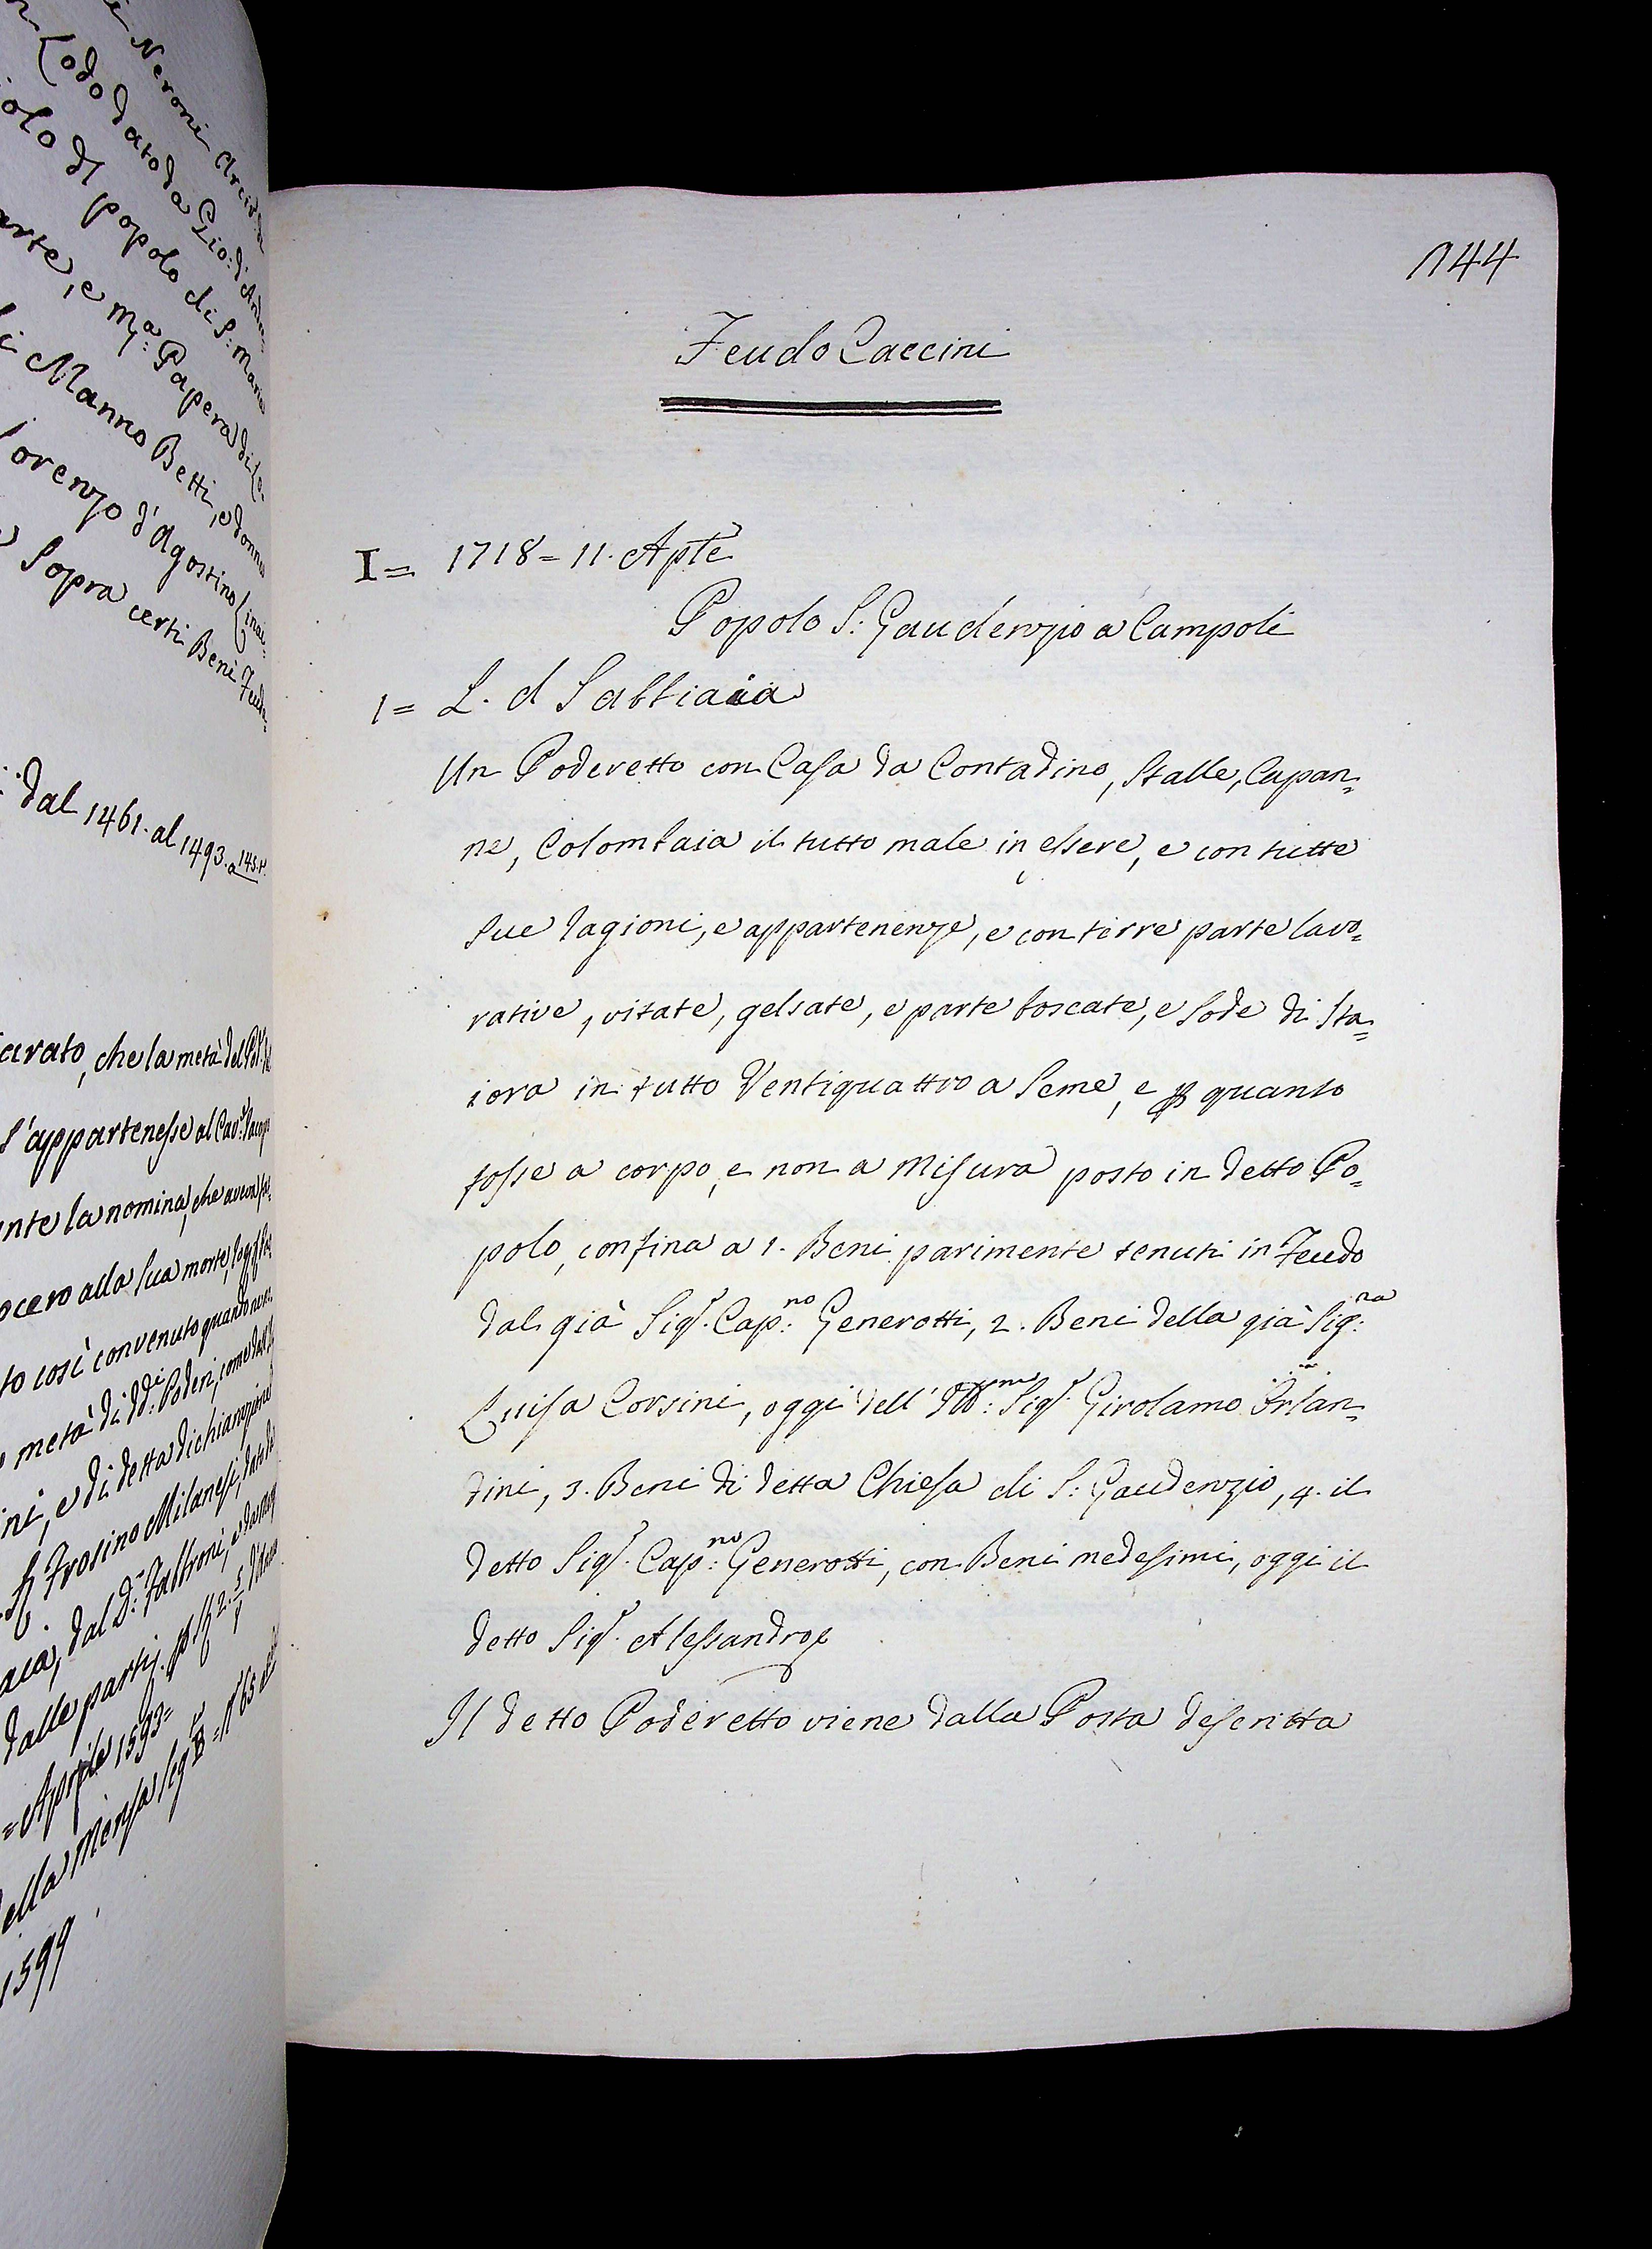 Neroni
Lodo dato da Gio: d'
olo dl popolo di S: Maria
arte, e Mª: Papera di
i Manno Betti, e donna
Lorenzo d'Agostino
Sopra certi Beni
dal 1461. al 1493. a 145.
arato, che la metà del
s'appartenesse al Cav.r
nte la nomina, che
ocero alla sua morte,
to così convenuto quando
metà di dd:i Poderi, come
ini, e di detta dichiarazione
Frosino Milanesi,
dal D: Faltroni, e da
dalle parti
= Aprile 1593 =
ella Mensa
1599
144
Feudo Caccini
I = 1718 = 11. Aple
Popolo S: Gaudenzio a Campoli
1 = L. d Sabbiaia
Un Poderetto con Casa da Contadino, Stalle, Capan=
ne, Colombaia il tutto male in essere, e con tutte
sue ragioni, e appartenenze, e con terre parte lavo=
rative, vitate, gelsate, e parte boscate, e Sode di Sta=
iora in tutto Ventiquattro a Seme, e p quanto
fosse a corpo, e non a Misura posto in detto Po=
polo, confina a 1. Beni parimente tenuti in Feudo
dal già Sigr. Cap:no Generotti, 2. Beni della già Sig:ra
Luisa Corsini, oggi dell' Ill:mo Sigr. Girolamo Orlan=
dini, 3. Beni di detta Chiesa di S: Gaudenzio, 4. il
detto Sigr. Cap:no Generotti, con Beni medesimi, oggi il
detto Sigr. Alessandro
Il detto Poderetto viene dalla Posta descritta